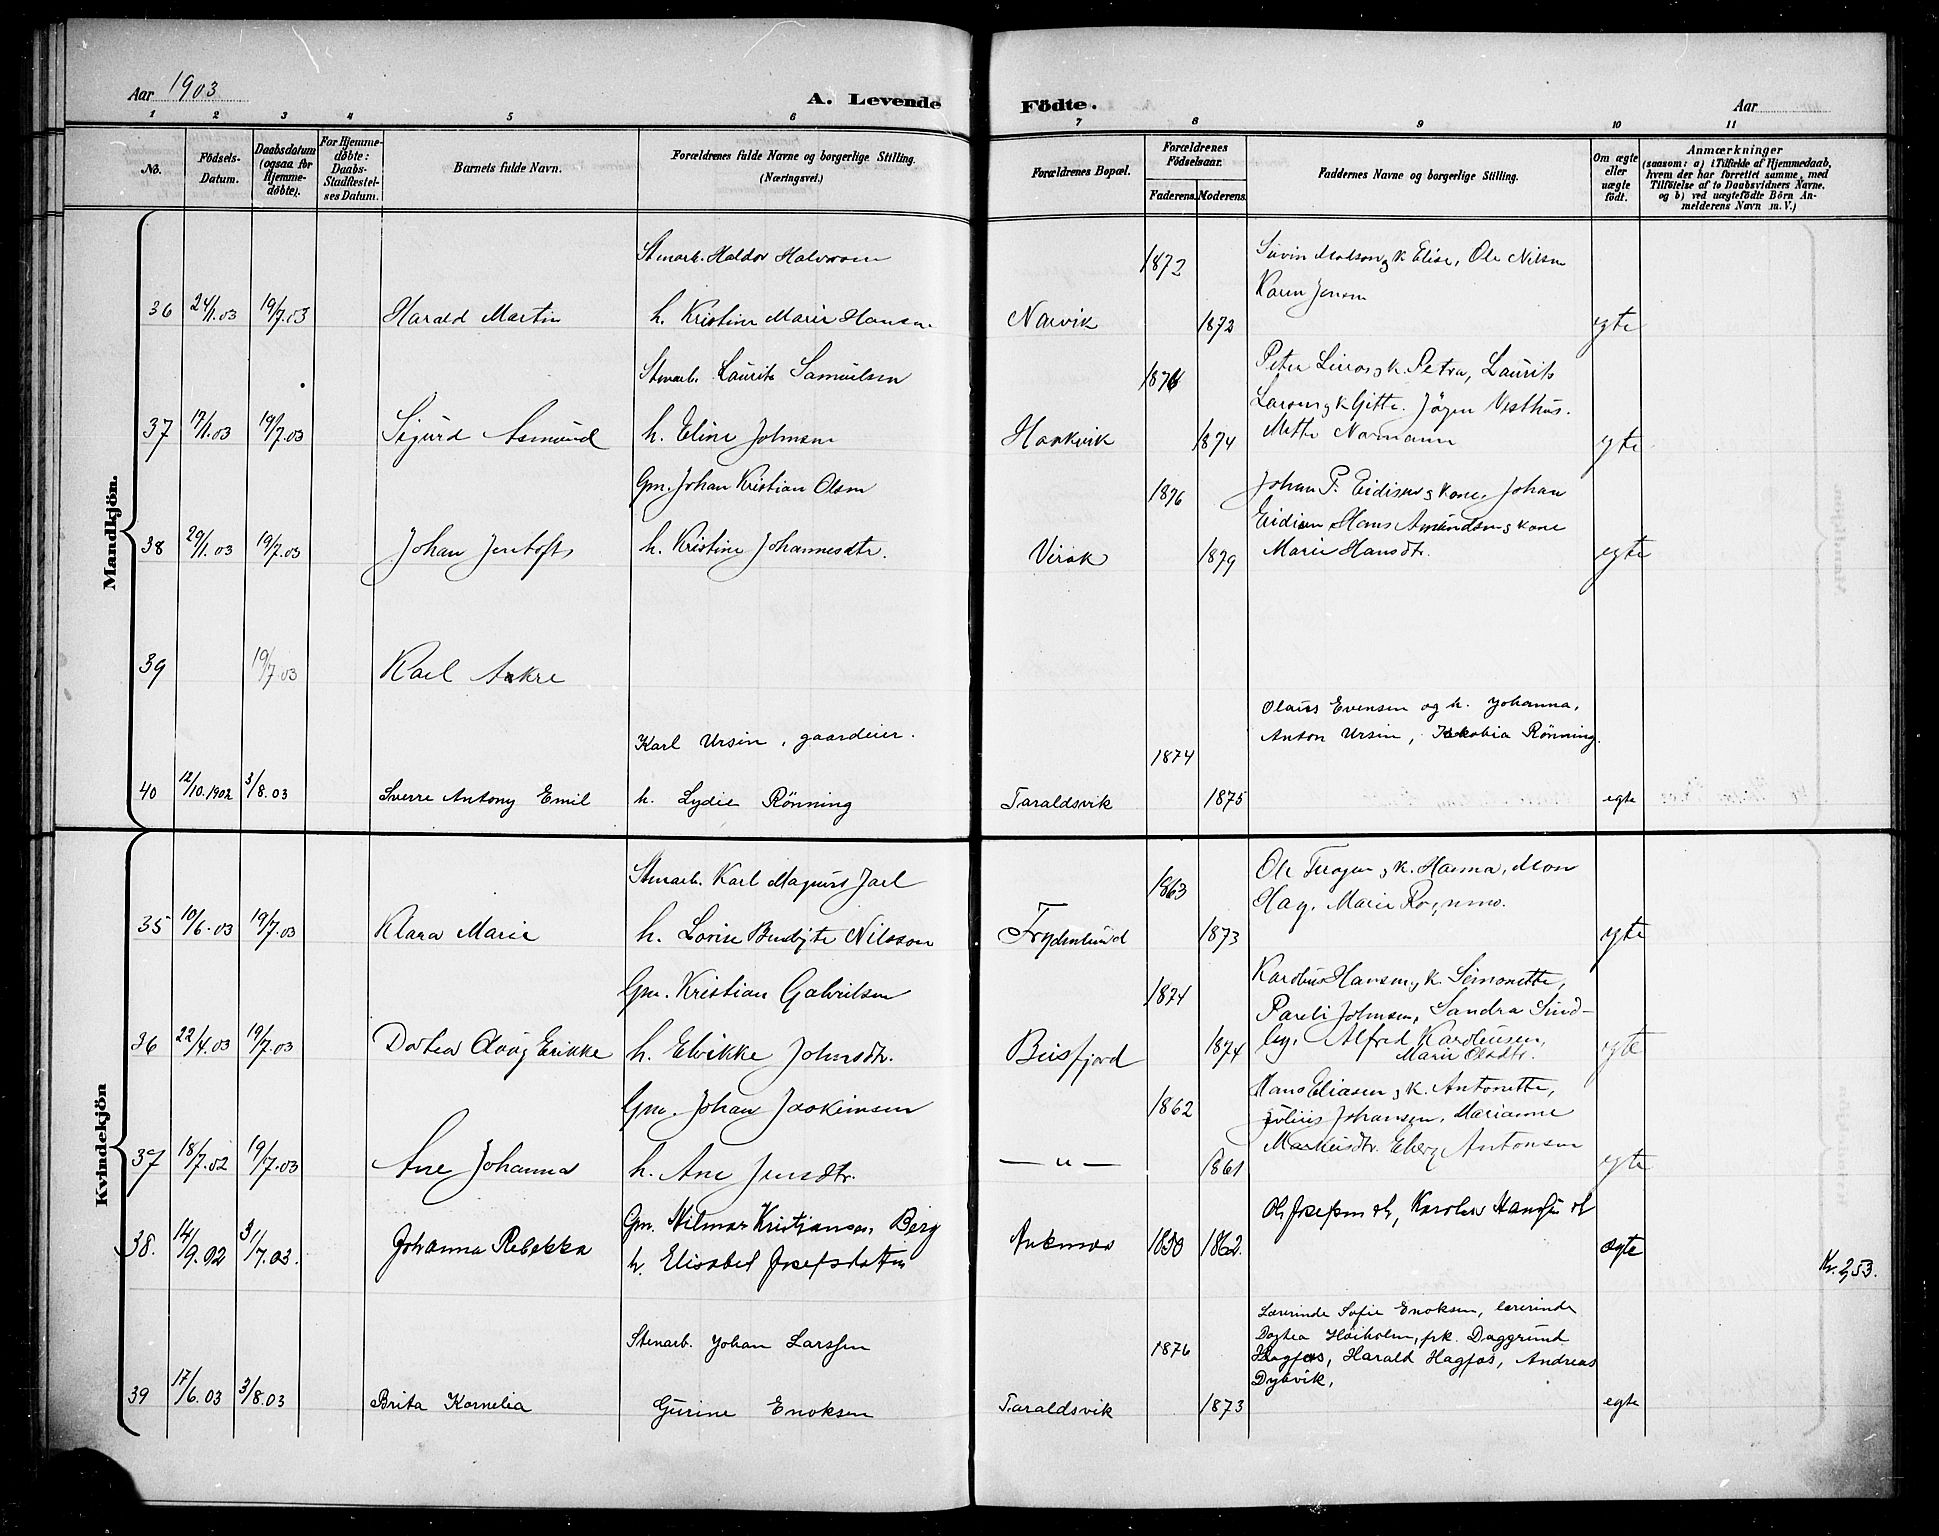 Aar 1903
A. Levende
Födte.
Aar
1 2 3 4 5 6 7 8 9 10 11
No.
Födsels-
Datum.
Daabsdatum
(ogsaa for
Hjemme-
døbte).
For Hjemme-
døbte:
Daabs-
Stadfæstel-
ses Datum.
Barnets fulde Navn.
Forældrenes fulde Navne og borgerlige Stilling.
(Næringsvei.)
Forældrenes Bopæl.
Forældrenes
Fødselsaar.
Faderens. Moderens.
Faddernes Navne og borgerlige Stilling.
Om ægte
eller
uægte
født.
Anmærkninger
(saasom: a) i Tilfælde af Hjemmedaab,
hvem der har forrettet samme, med
Tilføielse af to Daabsvidners Navne,
og b) ved uægtefødte Børn An-
melderens Navn m. V.)
Mandkjön.
Stenarb. Haldor Halvorsen 1872 Elise, Ole Nilsen
Karen Jensen
36 24/1.03 19/7.03 Harald Martin h. Kristine Marie Hansen Narvik 1872 egte
Stenarb. Laurits Samuelsen 187 Peter k. Petra, Laurits
Larsen g k Gitte. Jögen Vesthus.
37 17/1.03 19/7.03 Sigurd Asmund h. Eline Johnsen Haakvik 1874 Mette Normann egte
Gm. Johan Kristian Olsen 1876 Johan P. Eidisen g kone, Johan
Eidisen Hans Amundsen g kone
38 29/1.03 19/7.03 Johan Jentoft h. Kristine Johannesdtr. Virak 1879 Marie Hansdtr. egte
39 19/7.03 Karl Ankre
Karl Ursin, gaardeier. 1874 Olaus Evensen og h. Johanna,
Anton Ursin, Jakobia Rönning.
40 12/10.1902 3/8.03 Sverre Antony Emil h. Lydie Rönning Taraldsvik 1875 egte
Kvindekjön
Stenarb. Karl Magnus Jarl 1863 Ole k. Hanna, Mon
Hag. Marie
35 10/6.03 19/7.03 Klara Marie h. Lovise Nilsson Frydenlund 1873 egte
Gm. Kristian Gabrilsen 1874 Hansen g k. Simonette,
Pareli Johnsen, Sandra Lind-
36 22/4.03 19/7.03 Dortea Aaag Erikke h. Elvikke Johnsdtr. Beisfjord 1874 Alfred Karoliusen, egte
Marie Olsdtr.
Gm. Johan Joakimsen 1862 Hans Eliasen g k. Antonette,
Julius Johansen, Marianne
37 18/7.02 19/7.03 Ane Johanna h. Ane Jensdtr. —"— 1861 Markusdtr. Antonsen egte
38. 14/9.02 31/7.03. Johanna Rebekka Gm. Hilmar Kristiansen Berg
h. Elisabet Josefsdatter Ankenæs 1850 1862. Ole Josefsen ægte
Kr. 2,53.
Stenarb. Johan Larssen 1876 Lærerinde Sofie Enoksen, lærerinde
Dortea Höiholm, frk. Daggrund
Hagfos, Harald Hagfos, Andreas
Dybvik,
39 17/6.03 3/8.03 Brita Kornelia Gurine Enoksen Taraldsvik 1873 egte